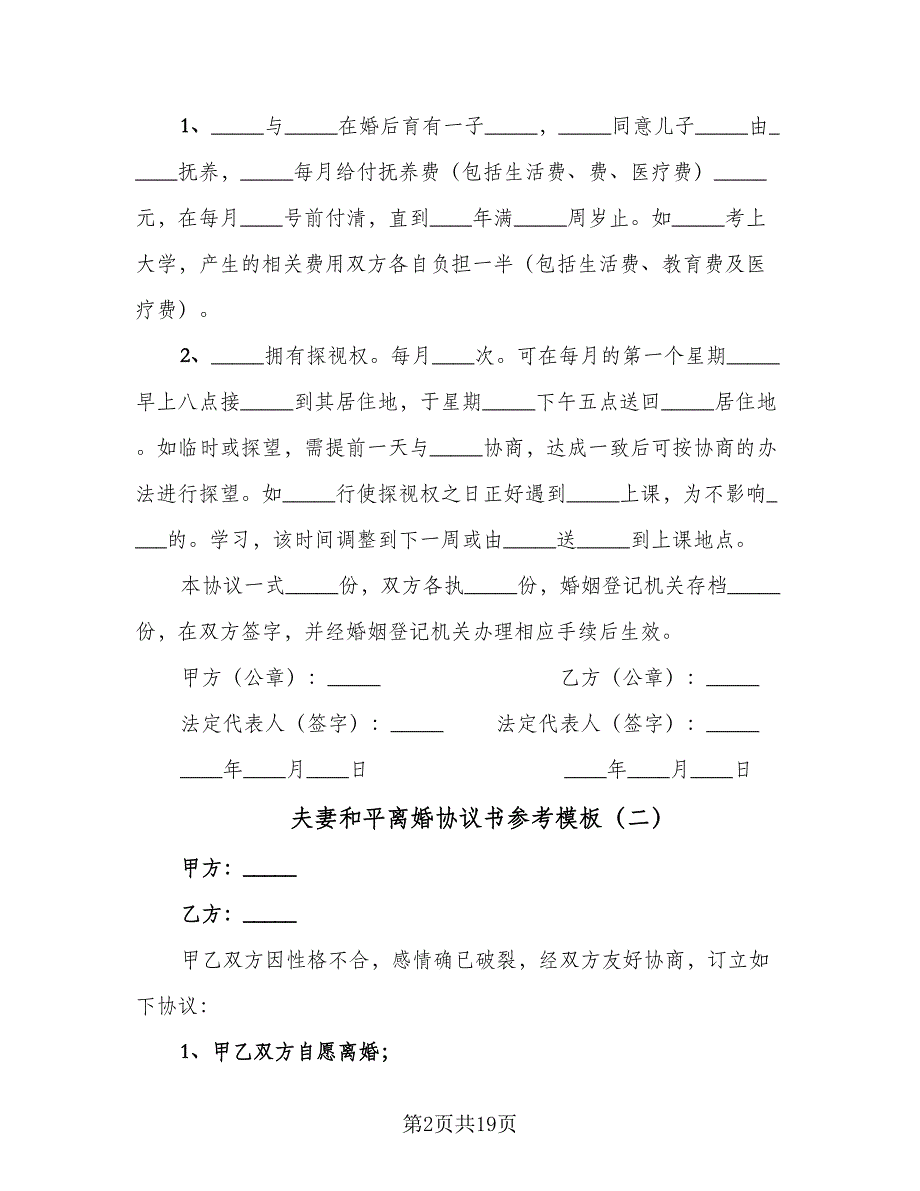 1、_____与_____在婚后育有一子_____，_____同意儿子_____由_
____抚养，_____每月给付抚养费（包括生活费、费、医疗费）_____
元，在每月____号前付清，直到____年满_____周岁止。如_____考上
大学，产生的相关费用双方各自负担一半（包括生活费、教育费及医
疗费）。
2、_____拥有探视权。每月____次。可在每月的第一个星期_____
早上八点接_____到其居住地，于星期_____下午五点送回_____居住地
。如临时或探望，需提前一天与_____协商，达成一致后可按协商的办
法进行探望。如_____行使探视权之日正好遇到_____上课，为不影响_
___的。学习，该时间调整到下一周或由_____送_____到上课地点。
本协议一式_____份，双方各执_____份，婚姻登记机关存档_____
份，在双方签字，并经婚姻登记机关办理相应手续后生效。
甲方（公章）：_____ 乙方（公章）：_____
法定代表人（签字）：_____ 法定代表人（签字）：_____
____年____月____日 ____年____月____日
夫妻和平离婚协议书参考模板（二）
甲方：_____
乙方：_____
甲乙双方因性格不合，感情确已破裂，经双方友好协商，订立如
下协议：
1、甲乙双方自愿离婚；
第2页共19页